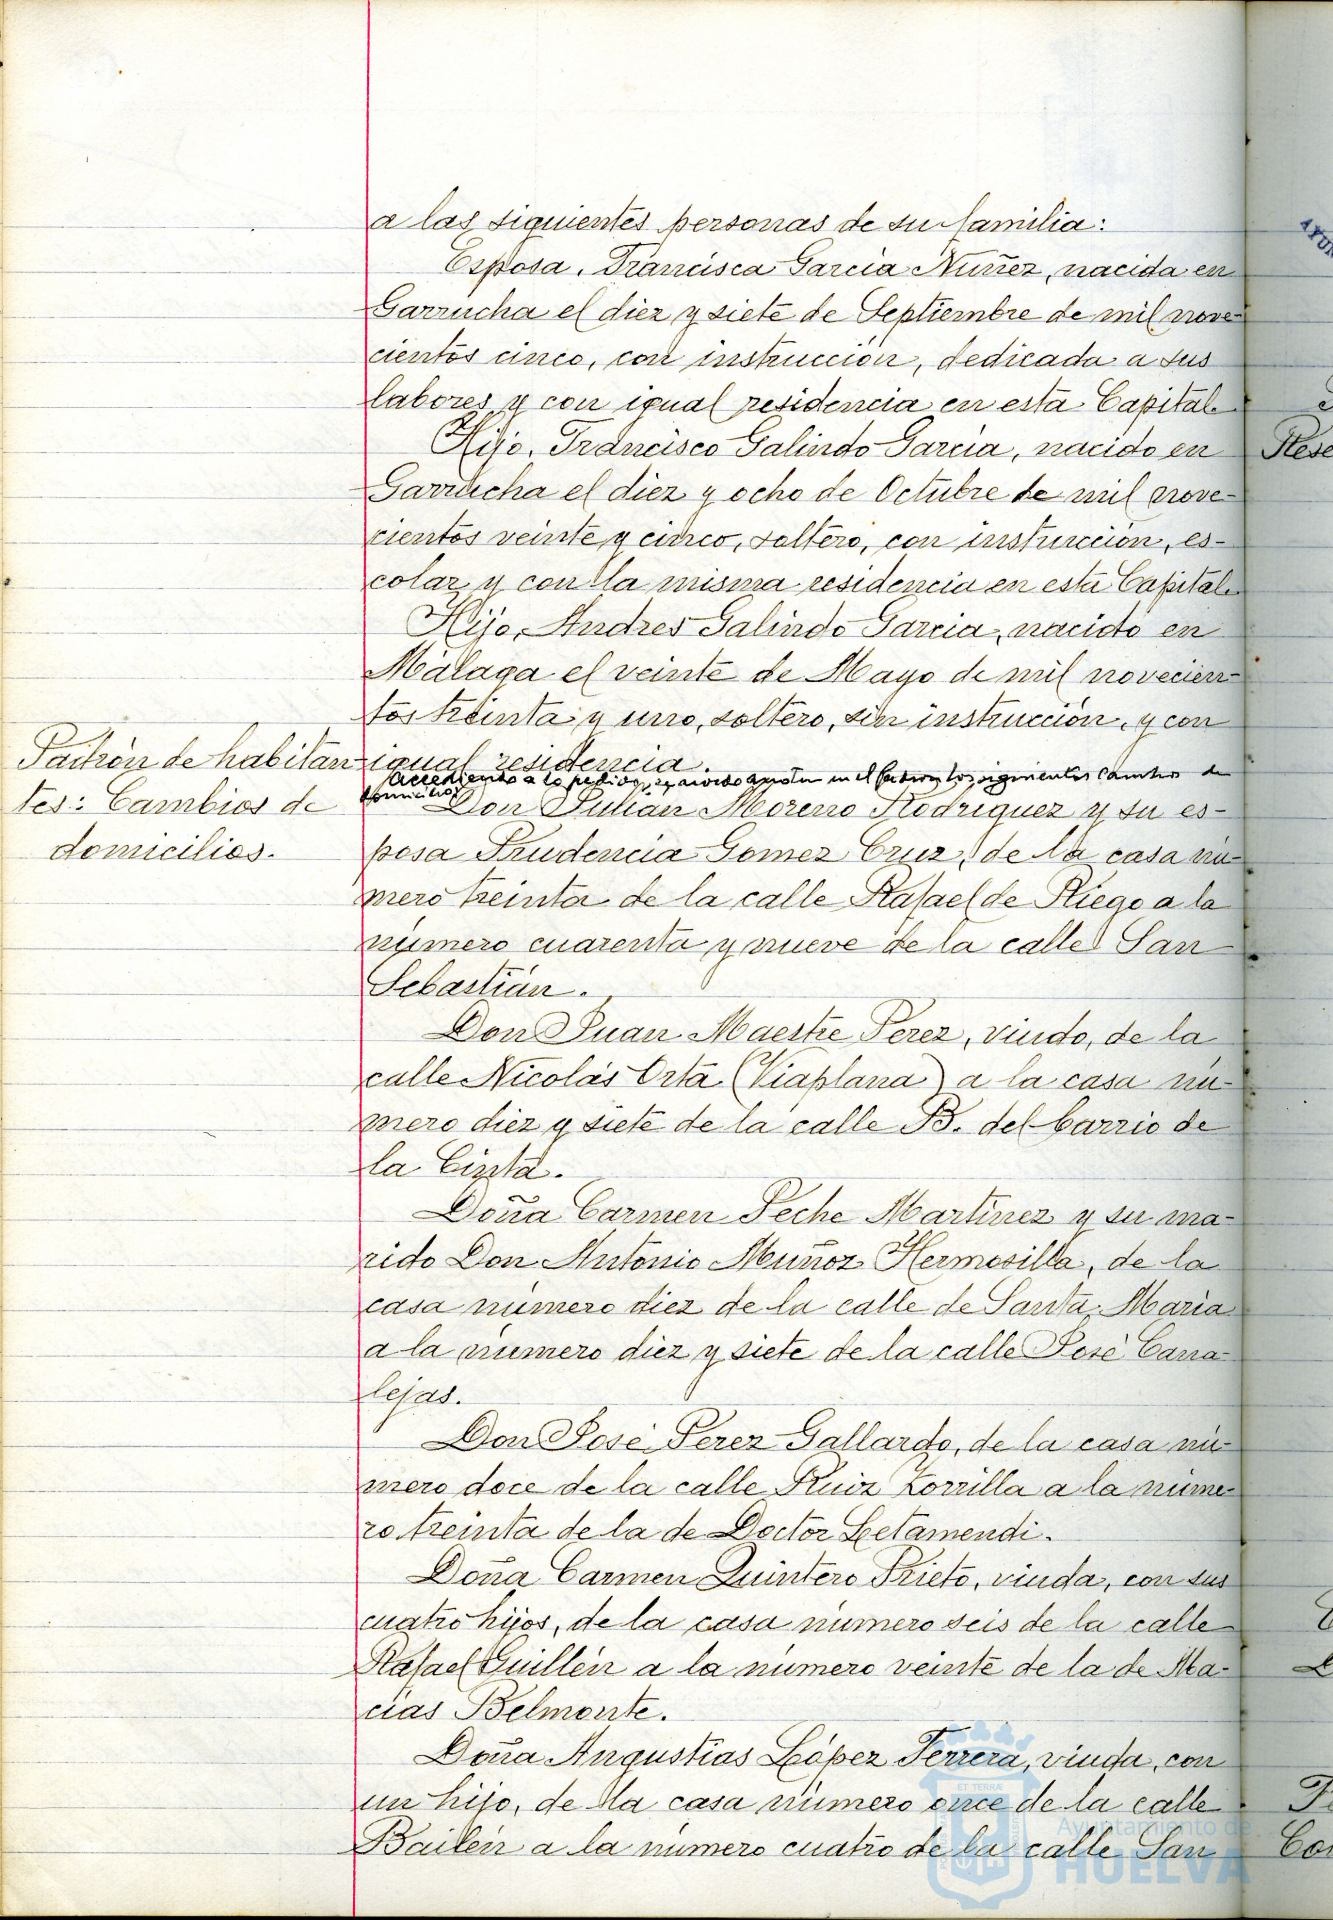 a las siguientes personas de su familia:
Esposa, Francisca Garcia Nuñez, nacida en
Garrucha el diez y siete de Septiembre de mil nove-
cientos cinco, con instrucción, dedicada a sus
labores y con igual residencia en esta Capital.
Hijo, Francisco Galindo Garcia, nacido en
Garrucha el diez y ocho de Octubre de mil nove-
cientos veinte y cinco, soltero, con instrucción, es-
colar y con la misma residencia en esta Capital.
Hijo, Andres Galindo Garcia, nacido en
Málaga el veinte de Mayo de mil novecien-
tos treinta y uno, soltero, sin instrucción, y con
igual residencia.
Padrón de habitan-
tes: Cambios de
domicilios.
Accediendo a lo pedido, se acordó anotar en el Padron los siguientes cambios de
domicilios:
Don Julian Moreno Rodriguez y su es-
posa Prudencia Gomez Cruz, de la casa nú-
mero treinta de la calle Rafael de Riego a la
número cuarenta y nueve de la calle San
Sebastián.
Don Juan Maestre Perez, viudo, de la
calle Nicolás Orta (Viaplana) a la casa nú-
mero diez y siete de la calle B. del barrio de
la Cinta.
Doña Carmen Peche Martinez y su ma-
rido Don Antonio Muñoz Hermosilla, de la
casa número diez de la calle de Santa Maria
a la número diez y siete de la calle José Cana-
lejas.
Don José Perez Gallardo, de la casa nú-
mero doce de la calle Ruiz Zorrilla a la núme-
ro treinta de la de Doctor Letamendi.
Doña Carmen Quintero Prieto, viuda, con sus
cuatro hijos, de la casa número seis de la calle
Rafael Guillén a la número veinte de la de Ma-
cias Belmonte.
Doña Angustias López Ferrera, viuda, con
un hijo, de la casa número once de la calle
Bailén a la número cuatro de la calle San
Ayuntamiento de
HUELVA